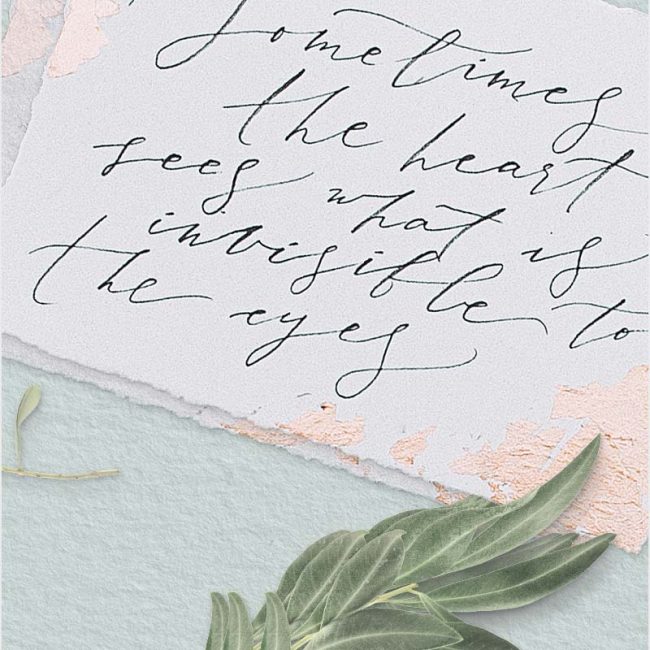 Sometimes
the heart
sees what is
invisible to
the eyes